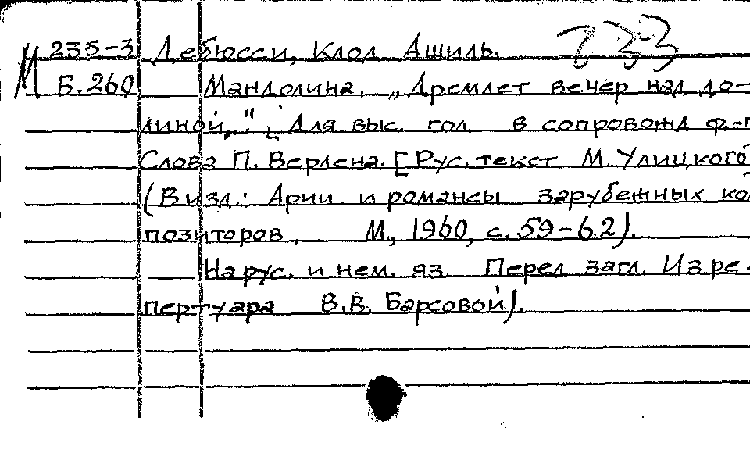 М 235-3 Дебюсси, Клод Ашиль. 233
Б.260 Мандолина. „Дремлет вечер над до-
линой„." [Для выс. гол. в сопровожд ф-п
Слова П. Верлена. [Рус. текст М. Улицкого
(В изд.: Арии и романсы зарубежных ком
позиторов, М., 1960, с. 59-62).
На рус. и нем. яз Перед загл. Из ре-
пертуара В.В. Барсовой).